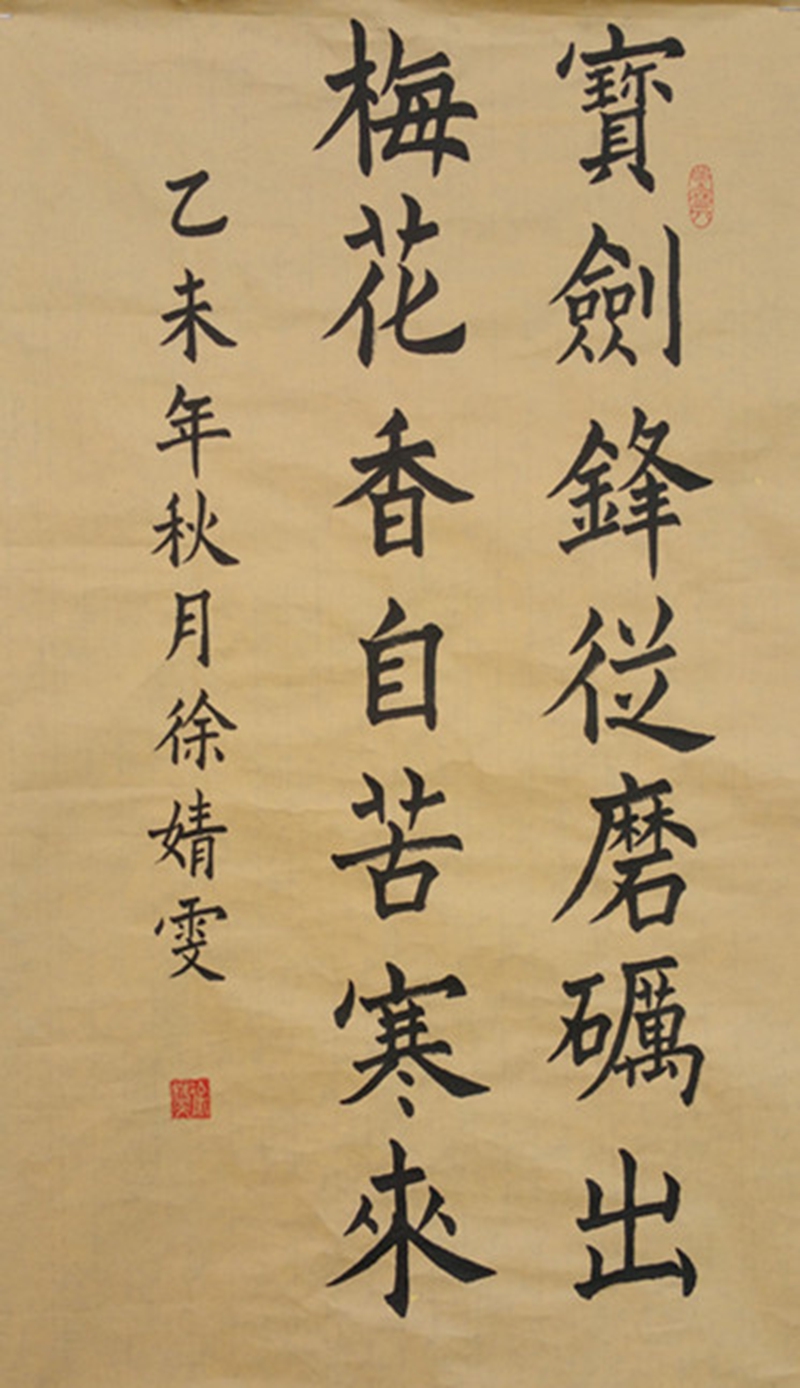 寶劍鋒從磨礪出
梅花香自苦寒來
乙未年秋月徐婧雯